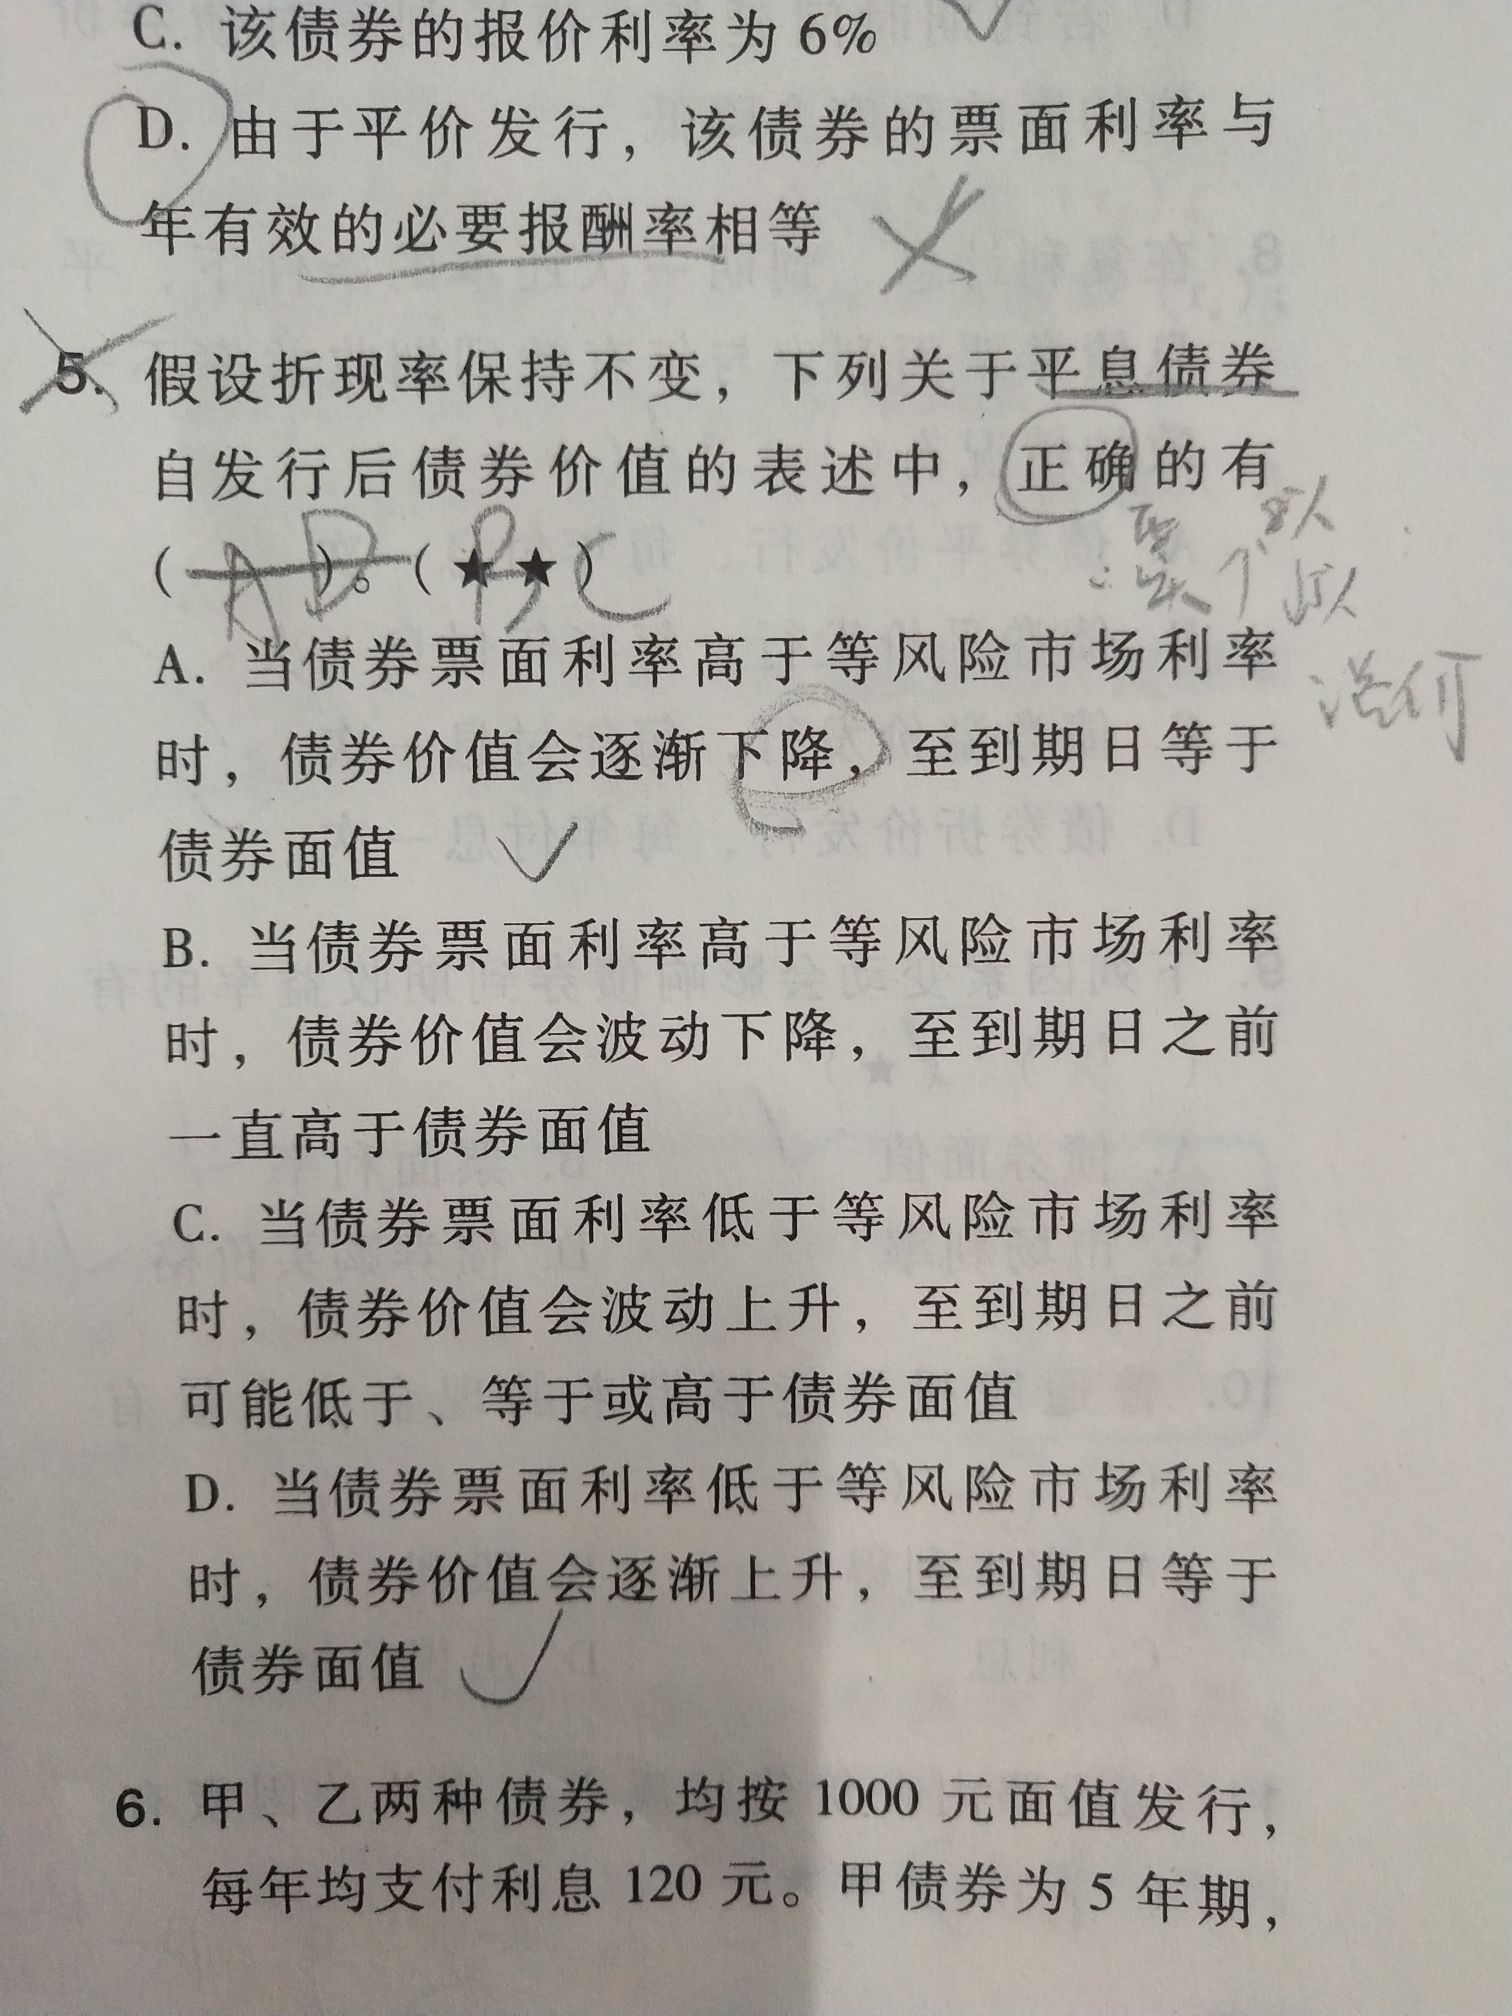 C. 该债券的报价利率为 6%
D. 由于平价发行，该债券的票面利率与
年有效的必要报酬率相等
5. 假设折现率保持不变，下列关于平息债券
自发行后债券价值的表述中，正确的有
( AD )。(★★) BC
A. 当债券票面利率高于等风险市场利率
溢价
时，债券价值会逐渐下降，至到期日等于
债券面值
B. 当债券票面利率高于等风险市场利率
时，债券价值会波动下降，至到期日之前
一直高于债券面值
C. 当债券票面利率低于等风险市场利率
时，债券价值会波动上升，至到期日之前
可能低于、等于或高于债券面值
D. 当债券票面利率低于等风险市场利率
时，债券价值会逐渐上升，至到期日等于
债券面值
6. 甲、乙两种债券，均按 1000 元面值发行，
每年均支付利息 120 元。甲债券为 5 年期，